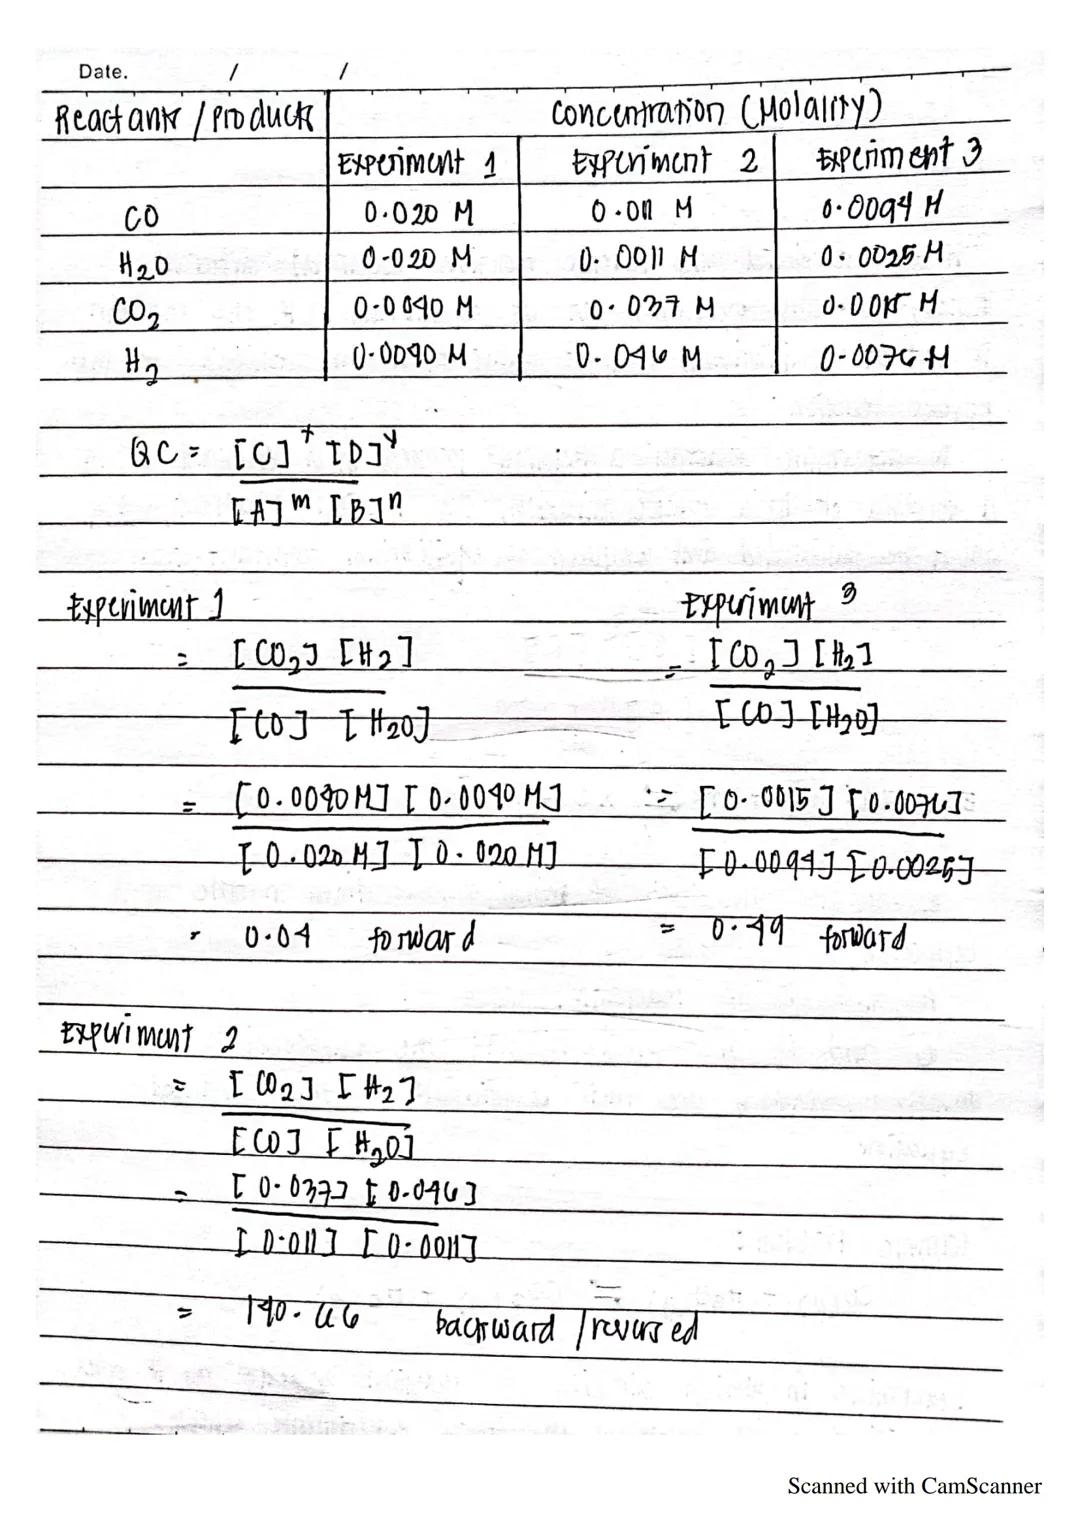 Date. / /
Reactants / products Concentration (Molality)
Experiment 1 Experiment 2 Experiment 3
CO 0.020 M 0.011 M 0.0094 M
H2O 0.020 M 0.0011 M 0.0025 M
CO2 0.0040 M 0.037 M 0.0015 M
H2 0.0040 M 0.046 M 0.0076 M
QC = [C]^x [D]^y
[A]^m [B]^n
Experiment 1 Experiment 3
= [CO2] [H2] = [CO2] [H2]
[CO] [H2O] [CO] [H2O]
= [0.0040 M] [0.0040 M] = [0.0015] [0.0076]
[0.020 M] [0.020 M] [0.0094] [0.0025]
= 0.04 forward = 0.49 forward
Experiment 2
= [CO2] [H2]
[CO] [H2O]
= [0.037] [0.046]
[0.011] [0.0011]
= 140.66 backward / reversed
Scanned with CamScanner